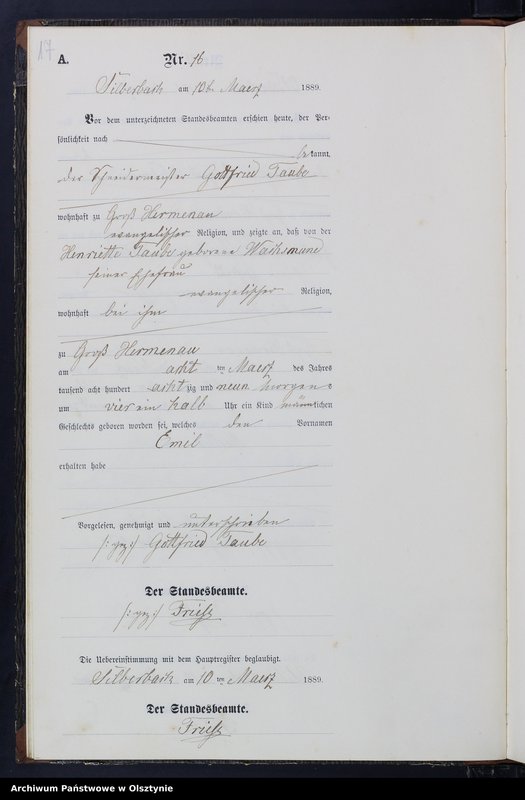 17
A. Nr. 16
Silberbach am 10t. Maerz 1889.
Vor dem unterzeichneten Standesbeamten erschien heute, der Per-
sönlichkeit nach
be kannt,
der Schneidermeister Gottfried Taube
wohnhaft zu Groß Hermenau
evangelischer Religion, und zeigte an, daß von der
Henriette Taube geborene Wachsmund
seiner Ehefrau
evangelischer Religion,
wohnhaft bei ihm
zu Groß Hermenau
am acht ten Maerz des Jahres
tausend acht hundert acht zig und neun Morgens
um vier ein halb Uhr ein Kind männlichen
Geschlechts geboren worden sei, welches den Vornamen
Emil
erhalten habe
Vorgelesen, genehmigt und unterschrieben
/: gez :/ Gottfried Taube
Der Standesbeamte.
/: gez :/ Friese
Die Uebereinstimmung mit dem Hauptregister beglaubigt.
Silberbach am 10 ten Maerz 1889.
Der Standesbeamte.
Friese
Archiwum Państwowe w Olsztynie